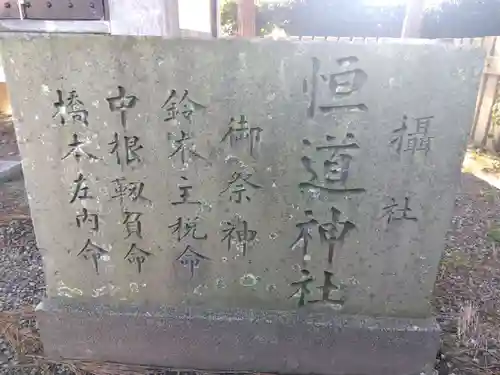 攝社
恒道神社
御祭神
鈴木主税命
中根靱負命
橋本左内命